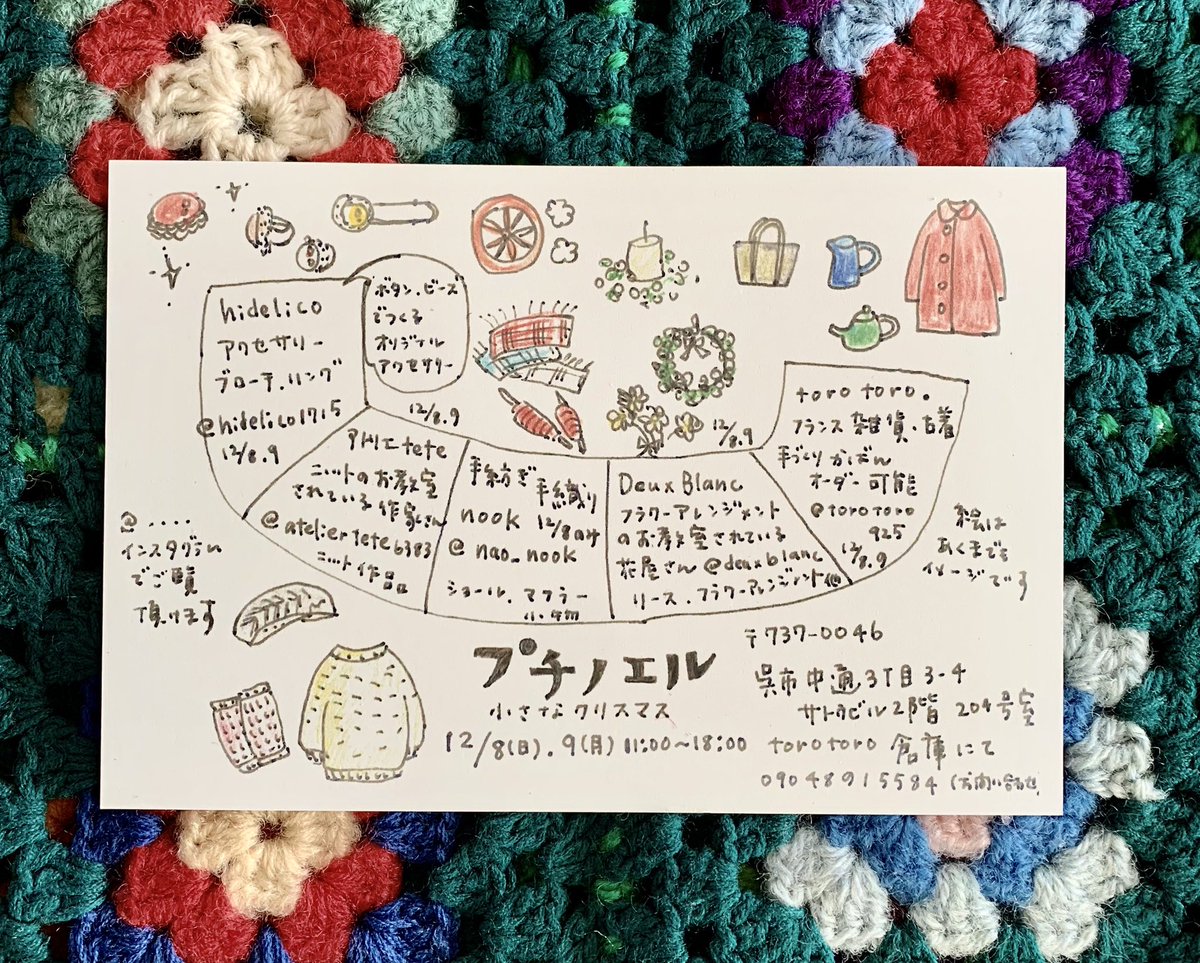 hidelico
アクセサリー
ブローチ.リング
@hidelico1715
12/8.9
ボタン.ビーズ
でつくる
オリジナル
アクセサリー
12/8.9
アトリエtete
ニットのお教室
されている作家さん
@ateliertete6383
ニット作品
手紡ぎ
手織り
nook 12/8のみ
@nao_nook
ショール.マフラー
小物
12/8.9
Deux Blanc
フラワーアレンジメント
のお教室されている
花屋さん@deuxblanc
リース.フラワーアレンジメント他
toro toro.
フランス雑貨.古着
手づくりかばん
オーダー可能
@torotoro
925
12/8.9
@....
インスタグラム
でご覧
頂けます
絵は
あくまでも
イメージです
プチノエル
小さなクリスマス
12/8(日).9(月)11:00~18:00
〒737-0046
呉市中通3丁目3-4
サトウビル2階 204号室
torotoro倉庫にて
09048915584(お問い合わせ)